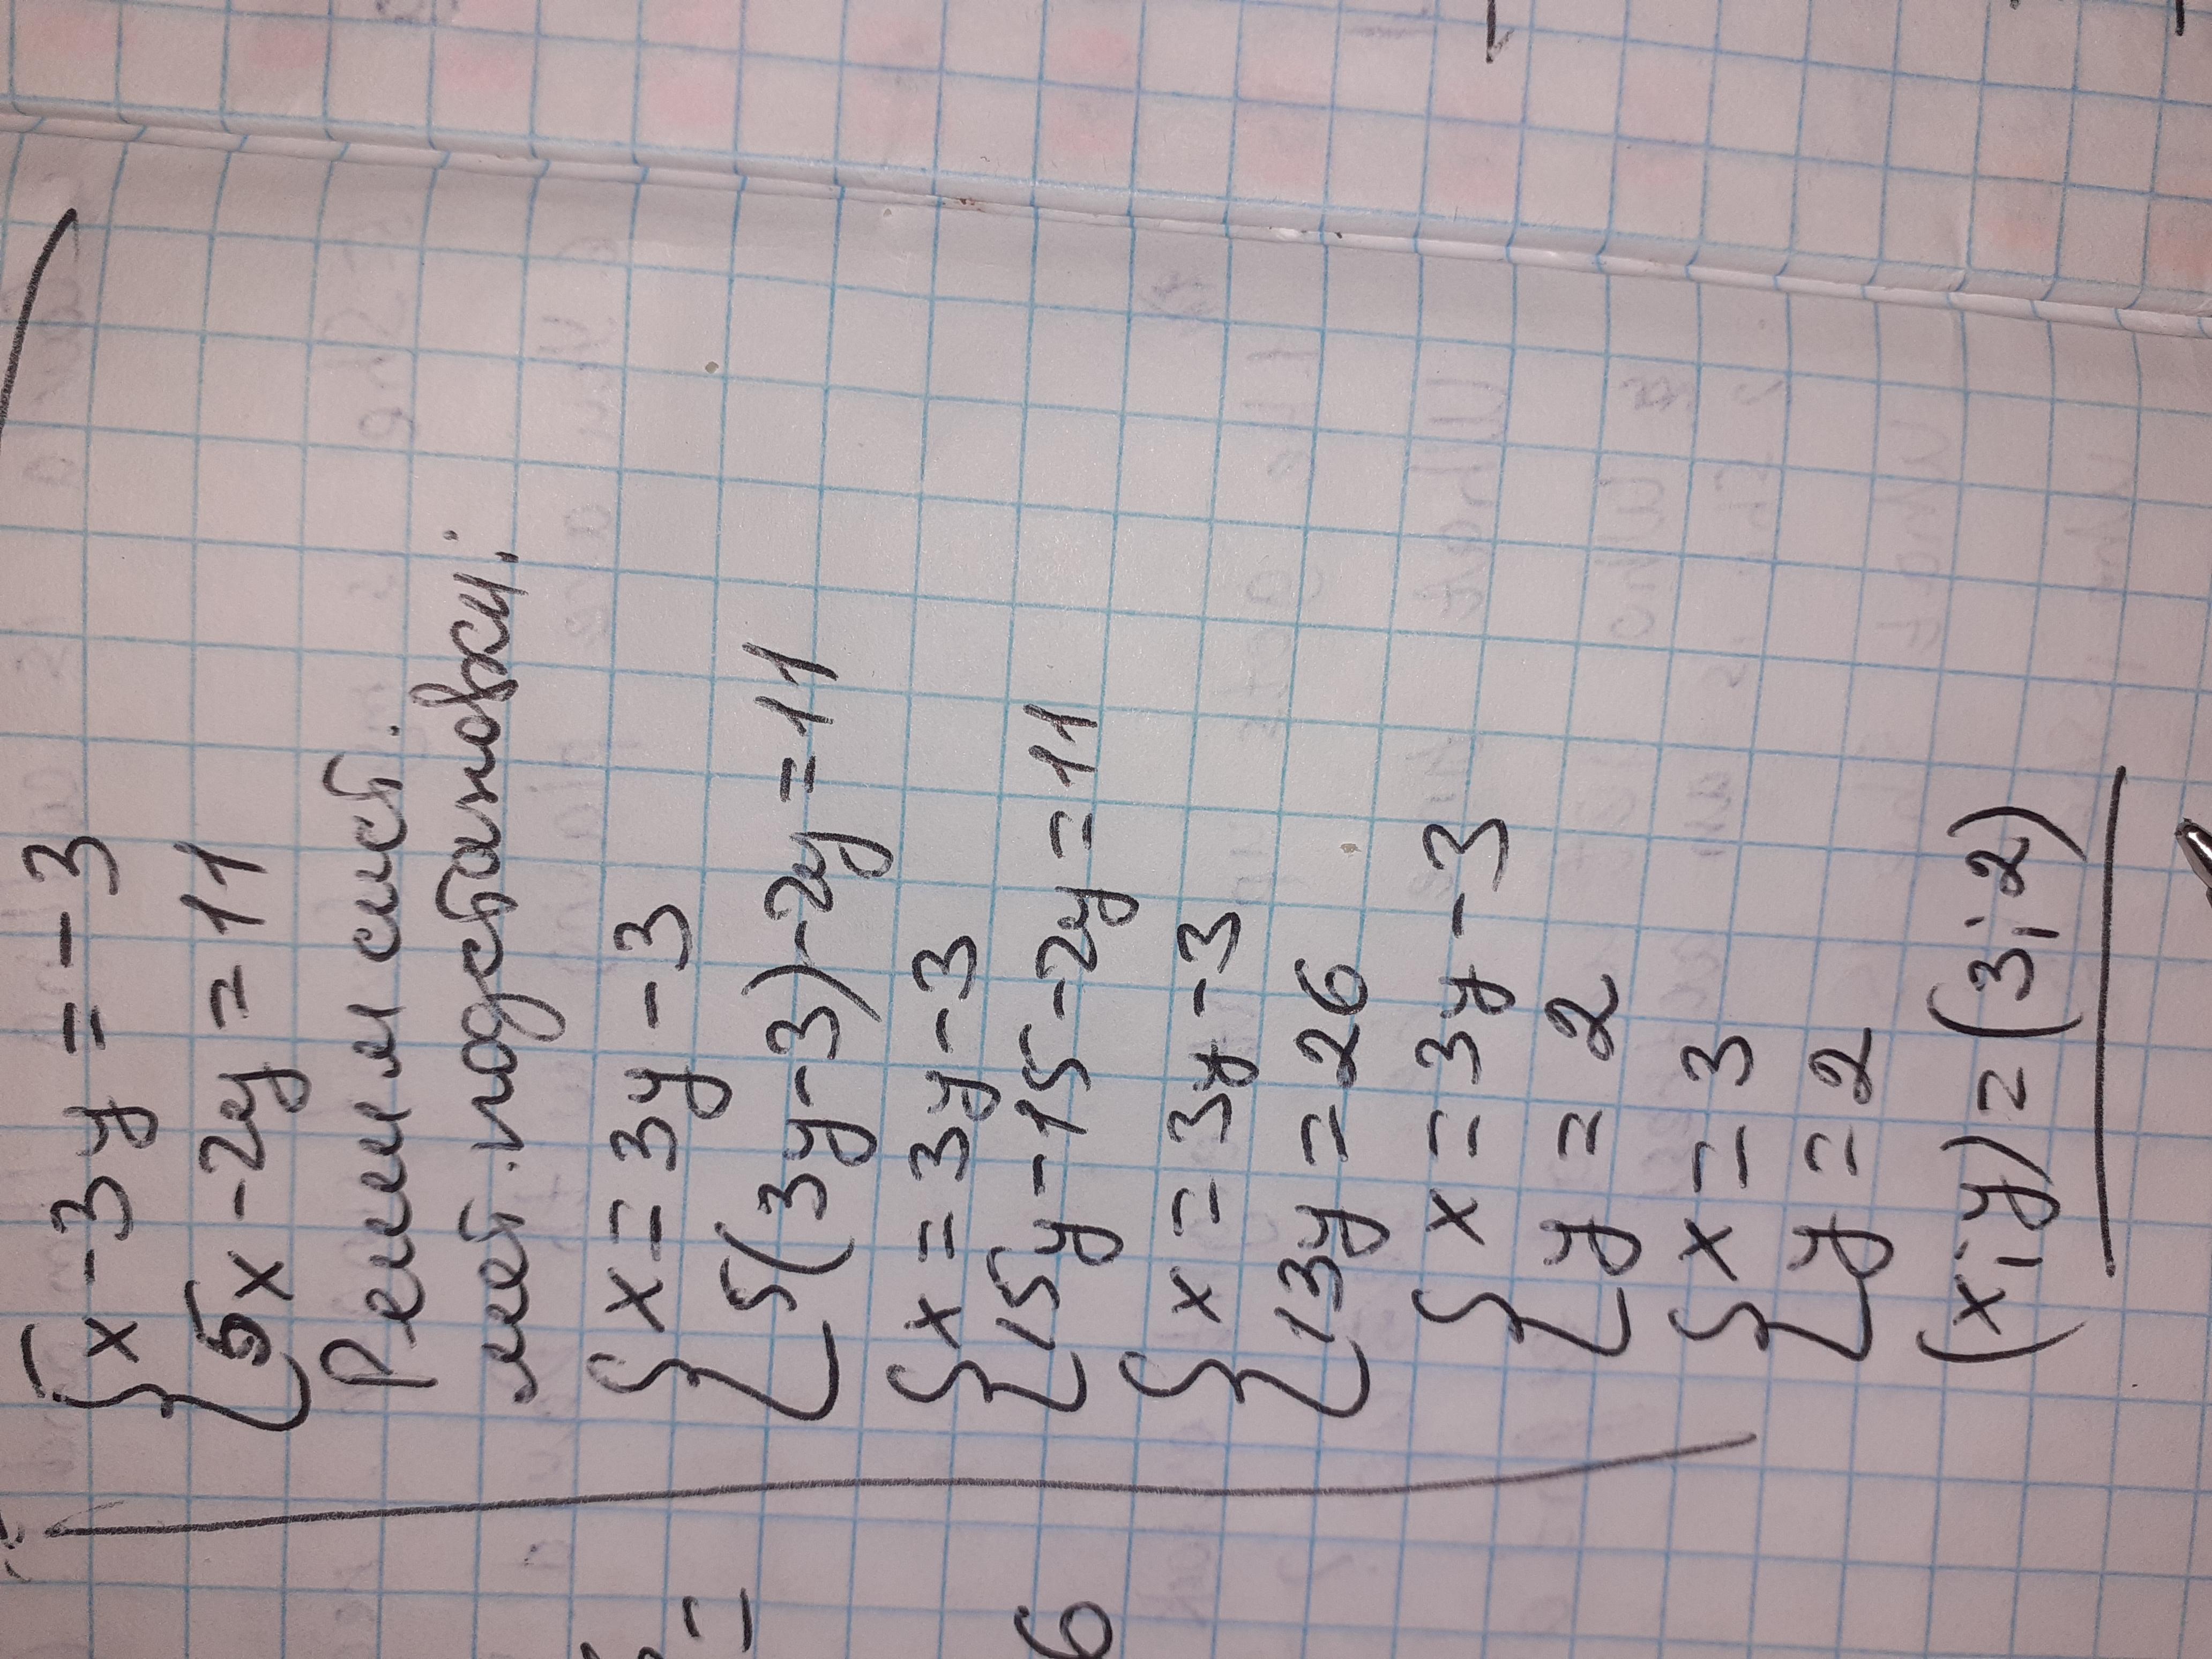 x-3y=-3
5x-2y=11
Решим сист.
мет. подстановки:
x=3y-3
5(3y-3)-2y=11
x=3y-3
15y-15-2y=11
x=3y-3
13y=26
x=3y-3
y=2
x=3
y=2
(x;y)=(3;2)
=
6